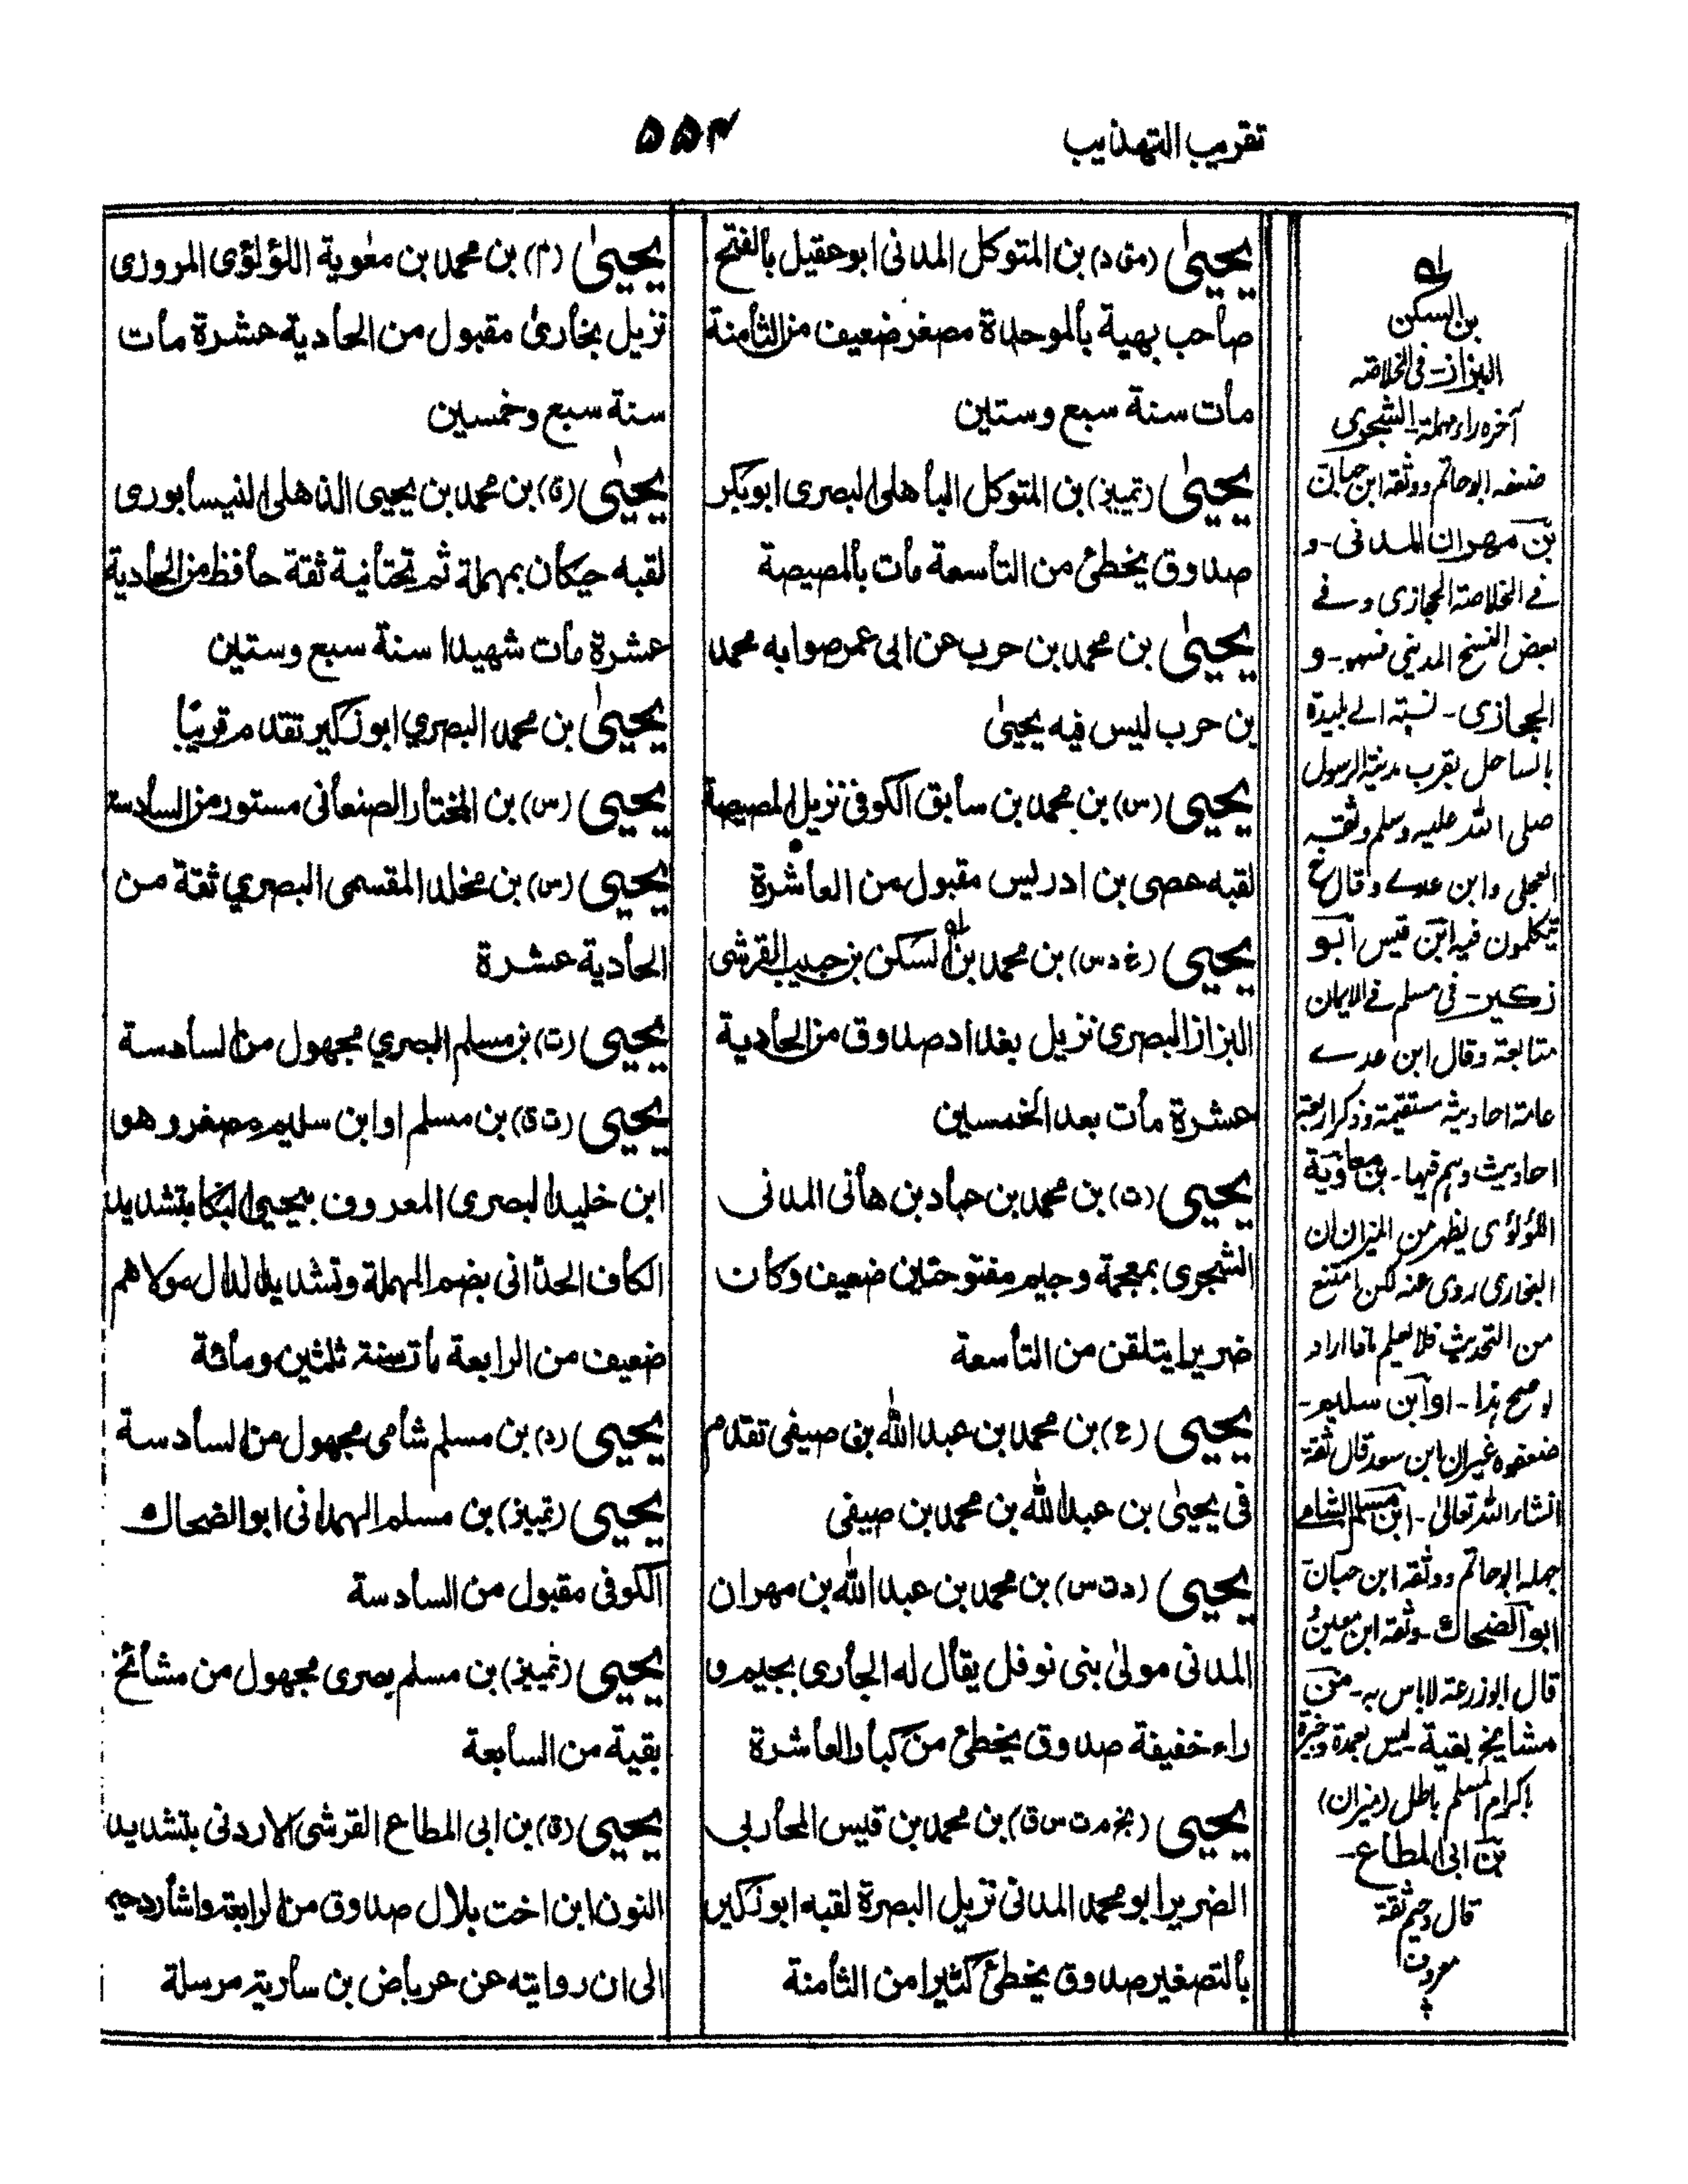 تقریب التهذیب
۵۵۴
یحییٰ (مق د) بن المتوکل المدنی ابو عقیل بالفتح
صاحب بهیة بالموحدة مصغر ضعیف من الثامنة
مات سنة سبع وستین
یحییٰ (تمییز) بن المتوکل الباهلی البصری ابوبکر
صدوق یخطئ من التاسعة مات بالمصیصة
یحییٰ بن محمد بن حرب عن ابی عمر صوابه محمد
بن حرب لیس فیه یحییٰ
یحیی (س) بن محمد بن سابق الکوفی نزیل المصیصة
لقبه عصی بن ادریس مقبول من العاشرة
یحیی (خ د س) بن محمد بن السکن بن حبیب القرشی
البزاز البصری نزیل بغداد صدوق من الحادیة
عشرة مات بعد الخمسین
یحیی (ت) بن محمد بن عباد بن هانی المدنی
الشجری بمعجمة وجیم مفتوحتین ضعیف وکان
ضریرا یتلقن من التاسعة
یحیی (ع) بن محمد بن عبد الله بن صیفی تقدم
فی یحییٰ بن عبد الله بن محمد بن صیفی
یحیی (د ت س) بن محمد بن عبد الله بن مهران
المدنی مولیٰ بنی نوفل یقال له الجاری بجیم و
راء خفیفة صدوق یخطئ من کبار العاشرة
یحیی (بخ م ت س ق) بن محمد بن قیس المحاربی
الضریر ابو محمد المدنی نزیل البصرة لقبه ابو زکیر
بالتصغیر صدوق یخطئ کثیرا من الثامنة
یحییٰ (م) بن محمد بن معٰویة اللؤلؤی المروزی
نزیل بخاریٰ مقبول من الحادیة عشرة مات
سنة سبع وخمسین
یحییٰ (ق) بن محمد بن یحیی الذهلی النیسابوری
لقبه حیکان بمهملة ثم تحتانیة ثقة حافظ من الحادیة
عشرة مات شهیدا سنة سبع وستین
یحییٰ بن محمد البصری ابو زکیر تقدم قریبًا
یحیی (س) بن المختار الصنعانی مستور من السادسة
یحیی (س) بن مخلد المقسمی البصری ثقة من
الحادیة عشرة
یحیی (ت) بن مسلم البصری مجهول من السادسة
یحیی (ت ق) بن مسلم او ابن سلیم مصغر وهو
ابن خلید البصری المعروف بیحیی البکا بتشدید
الکاف الحدّانی بضم المهملة وتشدید الدال مولاهم
ضعیف من الرابعة مات سنة ثلثین ومائة
یحیی (د) بن مسلم شامی مجهول من السادسة
یحیی (تمییز) بن مسلم الهمدانی ابو الضحاك
الکوفی مقبول من السادسة
یحیی (تمییز) بن مسلم بصری مجهول من مشائخ
بقیة من السابعة
یحیی (ق) بن ابی المطاع القرشی الاردنی بتشدید
النون ابن اخت بلال صدوق من الرابعة واشار دحیم
الی ان روایته عن عرباض بن ساریة مرسلة
بن السکن
البزاز۔ فی الخلاصه
آخره راء مهملة۔ الشجری
ضعفه ابو حاتم ووثقه ابن حبان
بن مهران المدنی۔ و
فے الخلاصة الحجازی وفے
بعض النسخ المدینی فسهو۔ و
الجاری۔ نسبة الے بلیدة
بالساحل بقرب مدینة الرسول
صلی الله علیه وسلم وثقه
العجلی وابن عدے وقال خ
یتکلمون فیه ابن قیس ابو
زکیر۔ فی مسلم فے الایمان
متابعة وقال ابن عدے
عامة احادیثه مستقیمة وذکر اربعة
احادیث وهم فیها۔ بن معاویة
اللؤلؤی یظهر من المیزان ان
البخاری روی عنه لکن امتنع
من التحدیث فلا یعلم ماذا اراد
لو صح هذا۔ او ابن سلیم۔
ضعفوه غیر ان ابن سعد قال ثقة
انشاء الله تعالیٰ۔ ابن مسلم الشامے
جهله ابو حاتم ووثقه ابن حبان
ابو الضحاك۔ وثقه ابن معین و
قال ابو زرعة لا باس به۔ من
مشایخ بقیة۔ لیس بعمدة وخبره
اکرام المسلم باطل (میزان)
بن ابی المطاع۔
قال دحیم ثقة
معروف